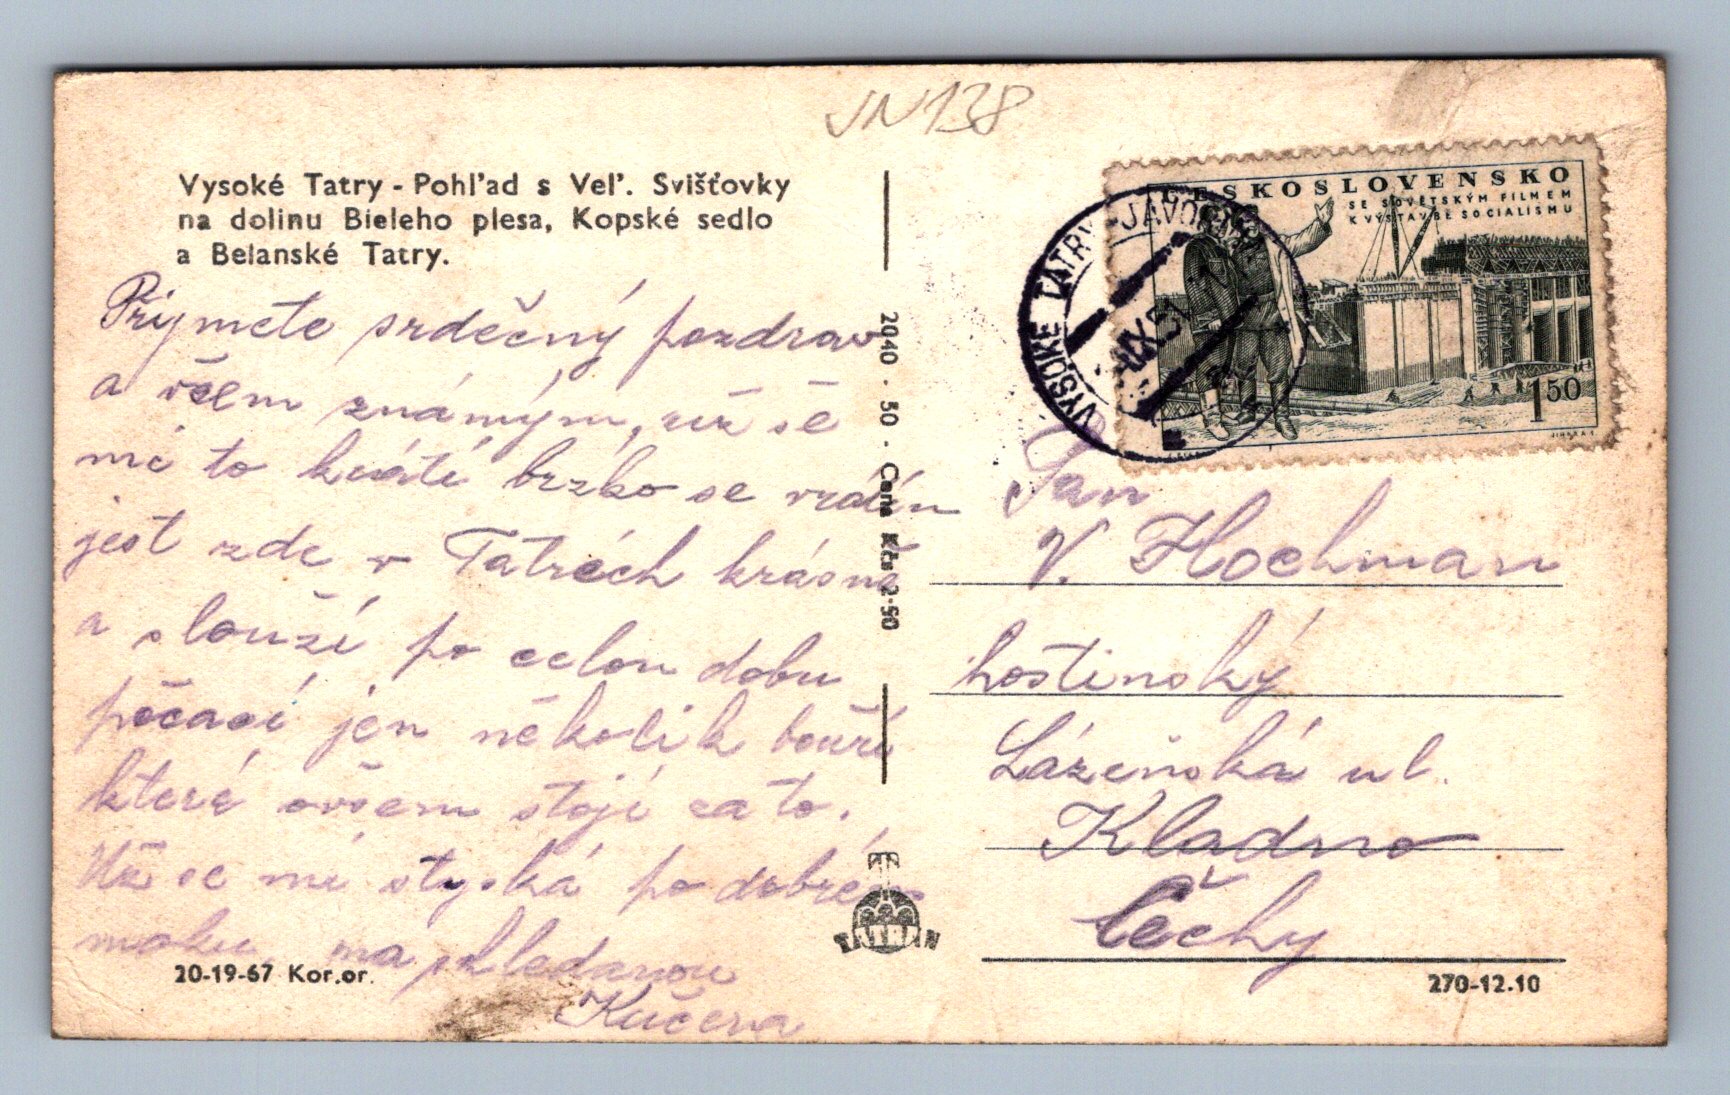 JN138
Vysoké Tatry - Pohl'ad s Vel'. Svišťovky
na dolinu Bieleho plesa, Kopské sedlo
a Belanské Tatry.
Přijmete srdečný pozdrav
a všem známým, už se
mi to krátí brzko se vrátím
jest zde v Tatrách krásně
a slouží po celou dobu
počasí jen několik bouří
které ovšem stojí za to.
Už se mi stýská po dobrém
moku na shledanou
Kučera
20-19-67 Kor.or.
2040 - 50 - Cena Kčs 2·50
TATRAN
ČESKOSLOVENSKO
SE SOVĚTSKÝM FILMEM
K VÝSTAVBĚ SOCIALISMU
1 50
VYSOKÉ TATRY-JAVORINA
Pan
V. Hochman
hostinský
Lázeňská ul.
Kladno
Čechy
270-12.10